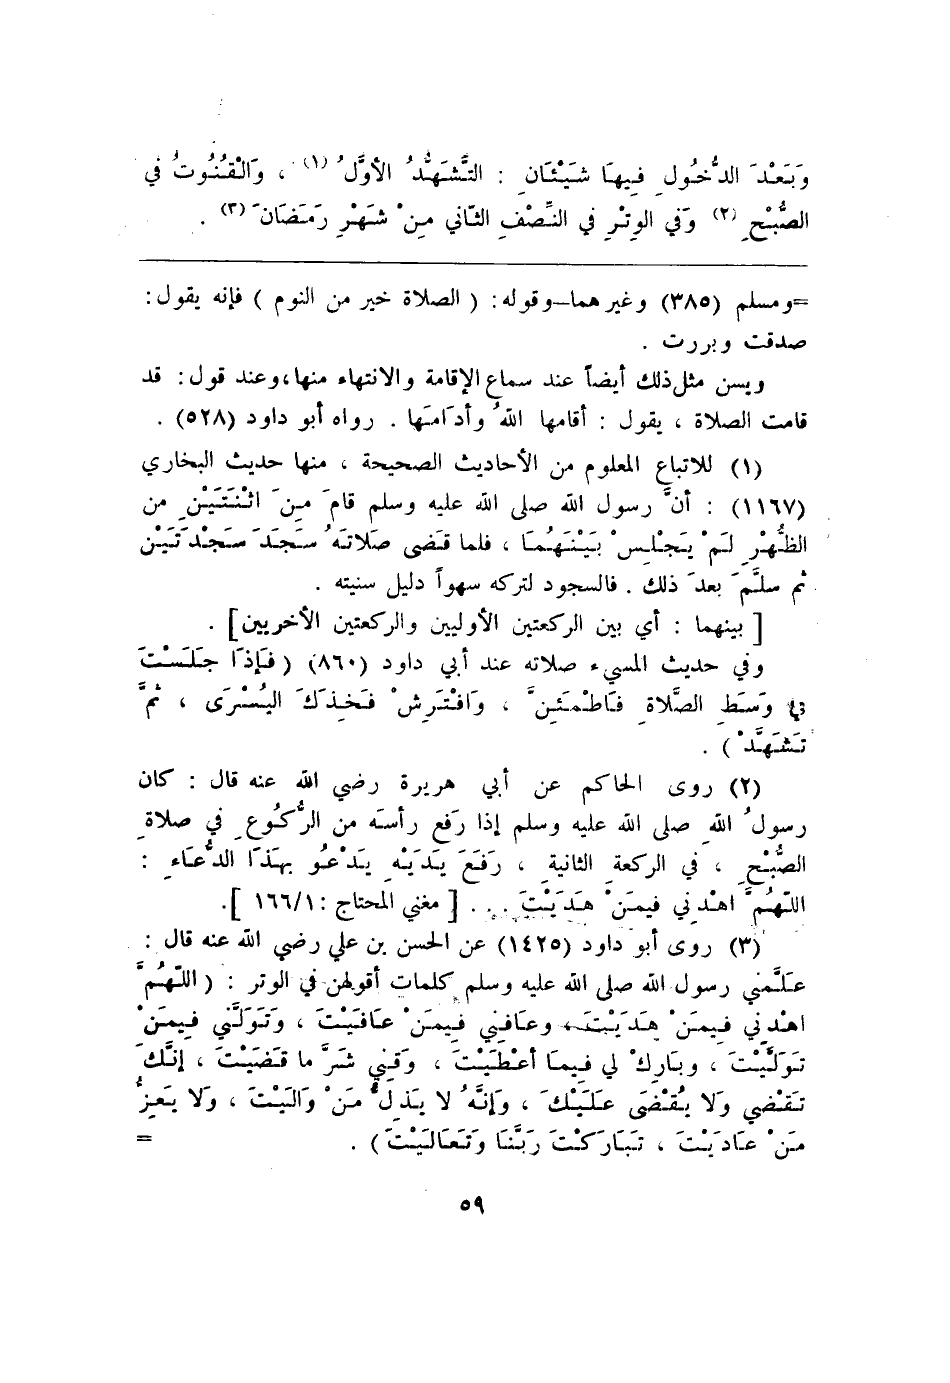 وَبَعْدَ الدُّخُولِ فِيهَا شَيْئَانِ : التَّشَهُّدُ الأوَّلُ (١) ، وَالْقُنُوتُ في
الصُّبْحِ (٢) وَفي الوِتْرِ في النِّصْفِ الثّاني مِنْ شَهْرِ رَمَضَانَ (٣) .
=ومسلم (٣٨٥) وغيرهما—وقوله: ( الصلاة خير من النوم ) فإنه يقول:
صدقت وبررت .
ويسن مثل ذلك أيضاً عند سماع الإقامة والانتهاء منها،وعند قول: قد
قامت الصلاة ، يقول : أقامها اللهُ وأدَامَها . رواه أبو داود (٥٢٨) .
(١) للاتباع المعلوم من الأحاديث الصحيحة ، منها حديث البخاري
(١١٦٧) : أنَّ رسول الله صلى الله عليه وسلم قامَ مِنَ اثْنَتَيْنِ من
الظُّهْرِ لَمْ يَجْلِسْ بَيْنَهُمَا ، فلما قَضى صَلاتَهُ سَجَدَ سَجْدَتَيْن
ثم سلَّمَ بعدَ ذلك . فالسجود لتركه سهواً دليل سنيته .
[ بينهما : أي بين الركعتين الأوليين والركعتين الأخريين] .
وفي حديث المسيء صلاته عند أبي داود (٨٦٠) (فَإذَا جَلَسْتَ
في وَسَطِ الصَّلاةِ فَاطْمَئِنَّ ، وَافْتَرِشْ فَخِذَكَ اليُسْرَى ، ثُمَّ
تَشَهَّدْ ) .
(٢) روى الحاكم عن أبي هريرة رضي الله عنه قال : كان
رسولُ اللهِ صلى الله عليه وسلم إذا رَفع رأسَه من الرُّكُوعِ في صلاةِ
الصُّبْحِ ، في الركعةِ الثانيةِ ، رَفَعَ يَدَيْهِ يَدْعُو بهَذَا الدُّعَاءِ :
اللّهُمَّ اهْدِني فيمَنْ هَدَيْتَ . . . [ مغني المحتاج : ١٦٦/١ ].
(٣) روى أبو داود (١٤٢٥) عن الحسن بن علي رضي الله عنه قال :
عَلَّمَني رسول الله صلى الله عليه وسلم كلمات أقولهن في الوتر : ( اللّهُمَّ
اهْدِني فيمَنْ هَدَيْتَ ، وعَافِني فيمَنْ عَافَيْتَ ، وَتَوَلَّني فيمَنْ
تَوَلَّيْتَ ، وبَارِكْ لي فيمَا أعْطَيْتَ ، وَقِني شَرَّ ما قَضَيْتَ ، إنَّكَ
تَقْضي ولا يُقْضَى عَلَيْكَ ، وَإنَّهُ لا يَذِلُّ مَنْ وَالَيْتَ ، ولا يَعِزُّ
مَنْ عَادَيْتَ ، تَبَارَكْتَ رَبَّنَا وَتَعَالَيْتَ ) . =
٥٩